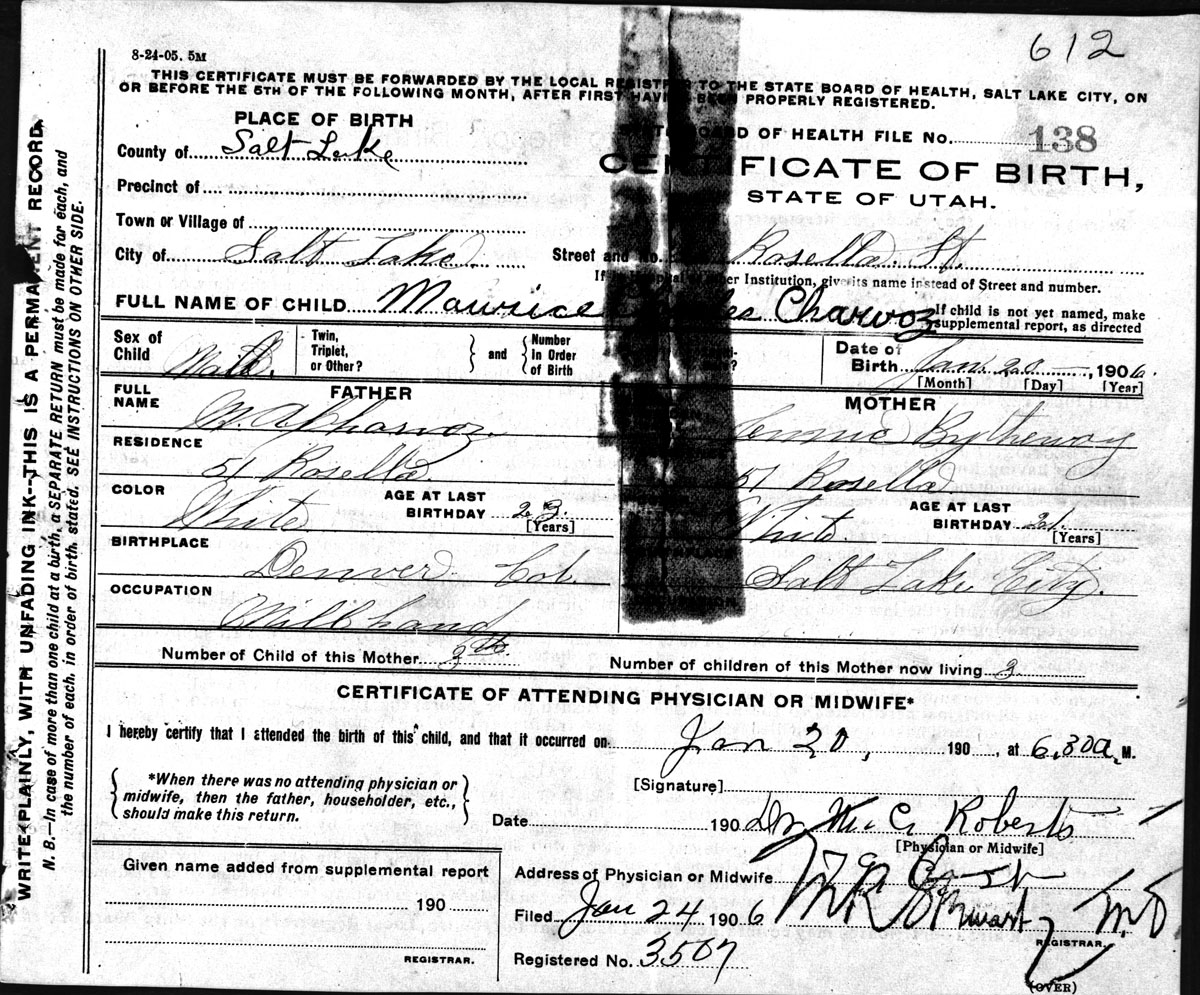 612
8-24-05. 5M
THIS CERTIFICATE MUST BE FORWARDED BY THE LOCAL REGISTRAR TO THE STATE BOARD OF HEALTH, SALT LAKE CITY, ON
OR BEFORE THE 5TH OF THE FOLLOWING MONTH, AFTER FIRST HAVING BEEN PROPERLY REGISTERED.
PLACE OF BIRTH
STATE BOARD OF HEALTH FILE No. 138
County of Salt Lake
CERTIFICATE OF BIRTH,
STATE OF UTAH.
Precinct of
Town or Village of
City of Salt Lake. Street and No. Rosella St.
If in Hospital or other Institution, give its name instead of Street and number.
FULL NAME OF CHILD Maurice Charvoz
If child is not yet named, make
supplemental report, as directed
Sex of
Child Male.
Twin,
Triplet,
or Other?
and
Number
in Order
of Birth
Date of
Birth Jan. 20, 1906.
[Month] [Day] [Year]
FATHER
MOTHER
FULL
NAME Charvoz Jennie Bytheway
RESIDENCE
51 Rosella 51 Rosella
COLOR
White White
AGE AT LAST
BIRTHDAY 23
[Years]
AGE AT LAST
BIRTHDAY 21.
[Years]
BIRTHPLACE
Denver Col. Salt Lake City.
OCCUPATION
Millhand
Number of Child of this Mother 3th.
Number of children of this Mother now living 3
CERTIFICATE OF ATTENDING PHYSICIAN OR MIDWIFE*
I hereby certify that I attended the birth of this child, and that it occurred on Jan 20, 190 , at 6.30a. M.
*When there was no attending physician or
midwife, then the father, householder, etc.,
should make this return.
[Signature]
Date 190 Dr W. C. Roberts
[Physician or Midwife]
Given name added from supplemental report
190
REGISTRAR.
Address of Physician or Midwife
Filed Jan 24 1906 Stewart M.D
REGISTRAR.
Registered No. 3507
(OVER)
WRITE PLAINLY, WITH UNFADING INK--THIS IS A PERMANENT RECORD.
N. B.—In case of more than one child at a birth, a SEPARATE RETURN must be made for each, and
the number of each, in order of birth, stated. SEE INSTRUCTIONS ON OTHER SIDE.